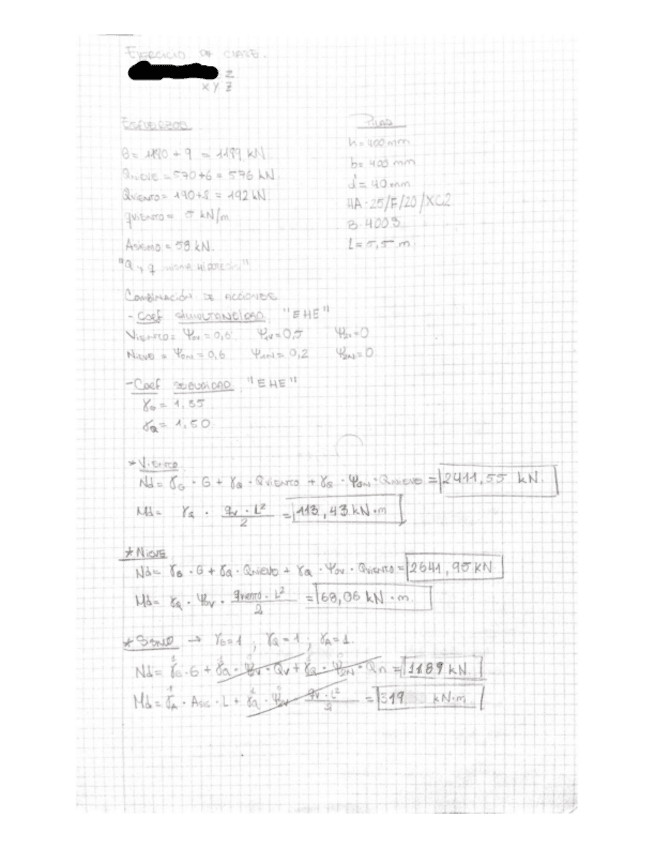 EJERCICIO DE CLASE.
Z
X Y Z
ESFUERZOS
G = 1180 + 9 = 1189 kN
QNIEVE = 570+6 = 576 kN
QVIENTO = 190+2 = 192 kN
qVIENTO = 5 kN/m
ASISMO = 58 kN.
"Q y q misma hipótesis"
PILAR
h = 400 mm
b = 400 mm
d' = 40 mm
HA-25/F/20/XC2
B-400S
L = 5,5 m
COMBINACIÓN DE ACCIONES
- COEF SIMULTANEIDAD "EHE"
VIENTO = Ψ0V = 0,6 Ψ1V = 0,5 Ψ2V = 0
NIEVE = Ψ0N = 0,6 Ψ1N = 0,2 Ψ2N = 0
- COEF SEGURIDAD "EHE"
γG = 1,35
γQ = 1,50
* VIENTO
Nd = γG · G + γQ · QVIENTO + γQ · Ψ0N · QNIEVE = 2411,55 kN
Md = γQ · qv · L² / 2 = 113,43 kN·m
* NIEVE
Nd = γG · G + γQ · QNIEVE + γQ · Ψ0V · QVIENTO = 2641,95 kN
Md = γQ · Ψ0V · qVIENTO · L² / 2 = 68,06 kN·m.
* SISMO → γG=1, γQ=1, γA=1.
Nd = γG · G + γQ · Ψ2V · Qv + γQ · Ψ2N · Qn = 1189 kN
Md = γA · Asis · L + γQ · Ψ2V · qv · L² / 2 = 319 kN·m.